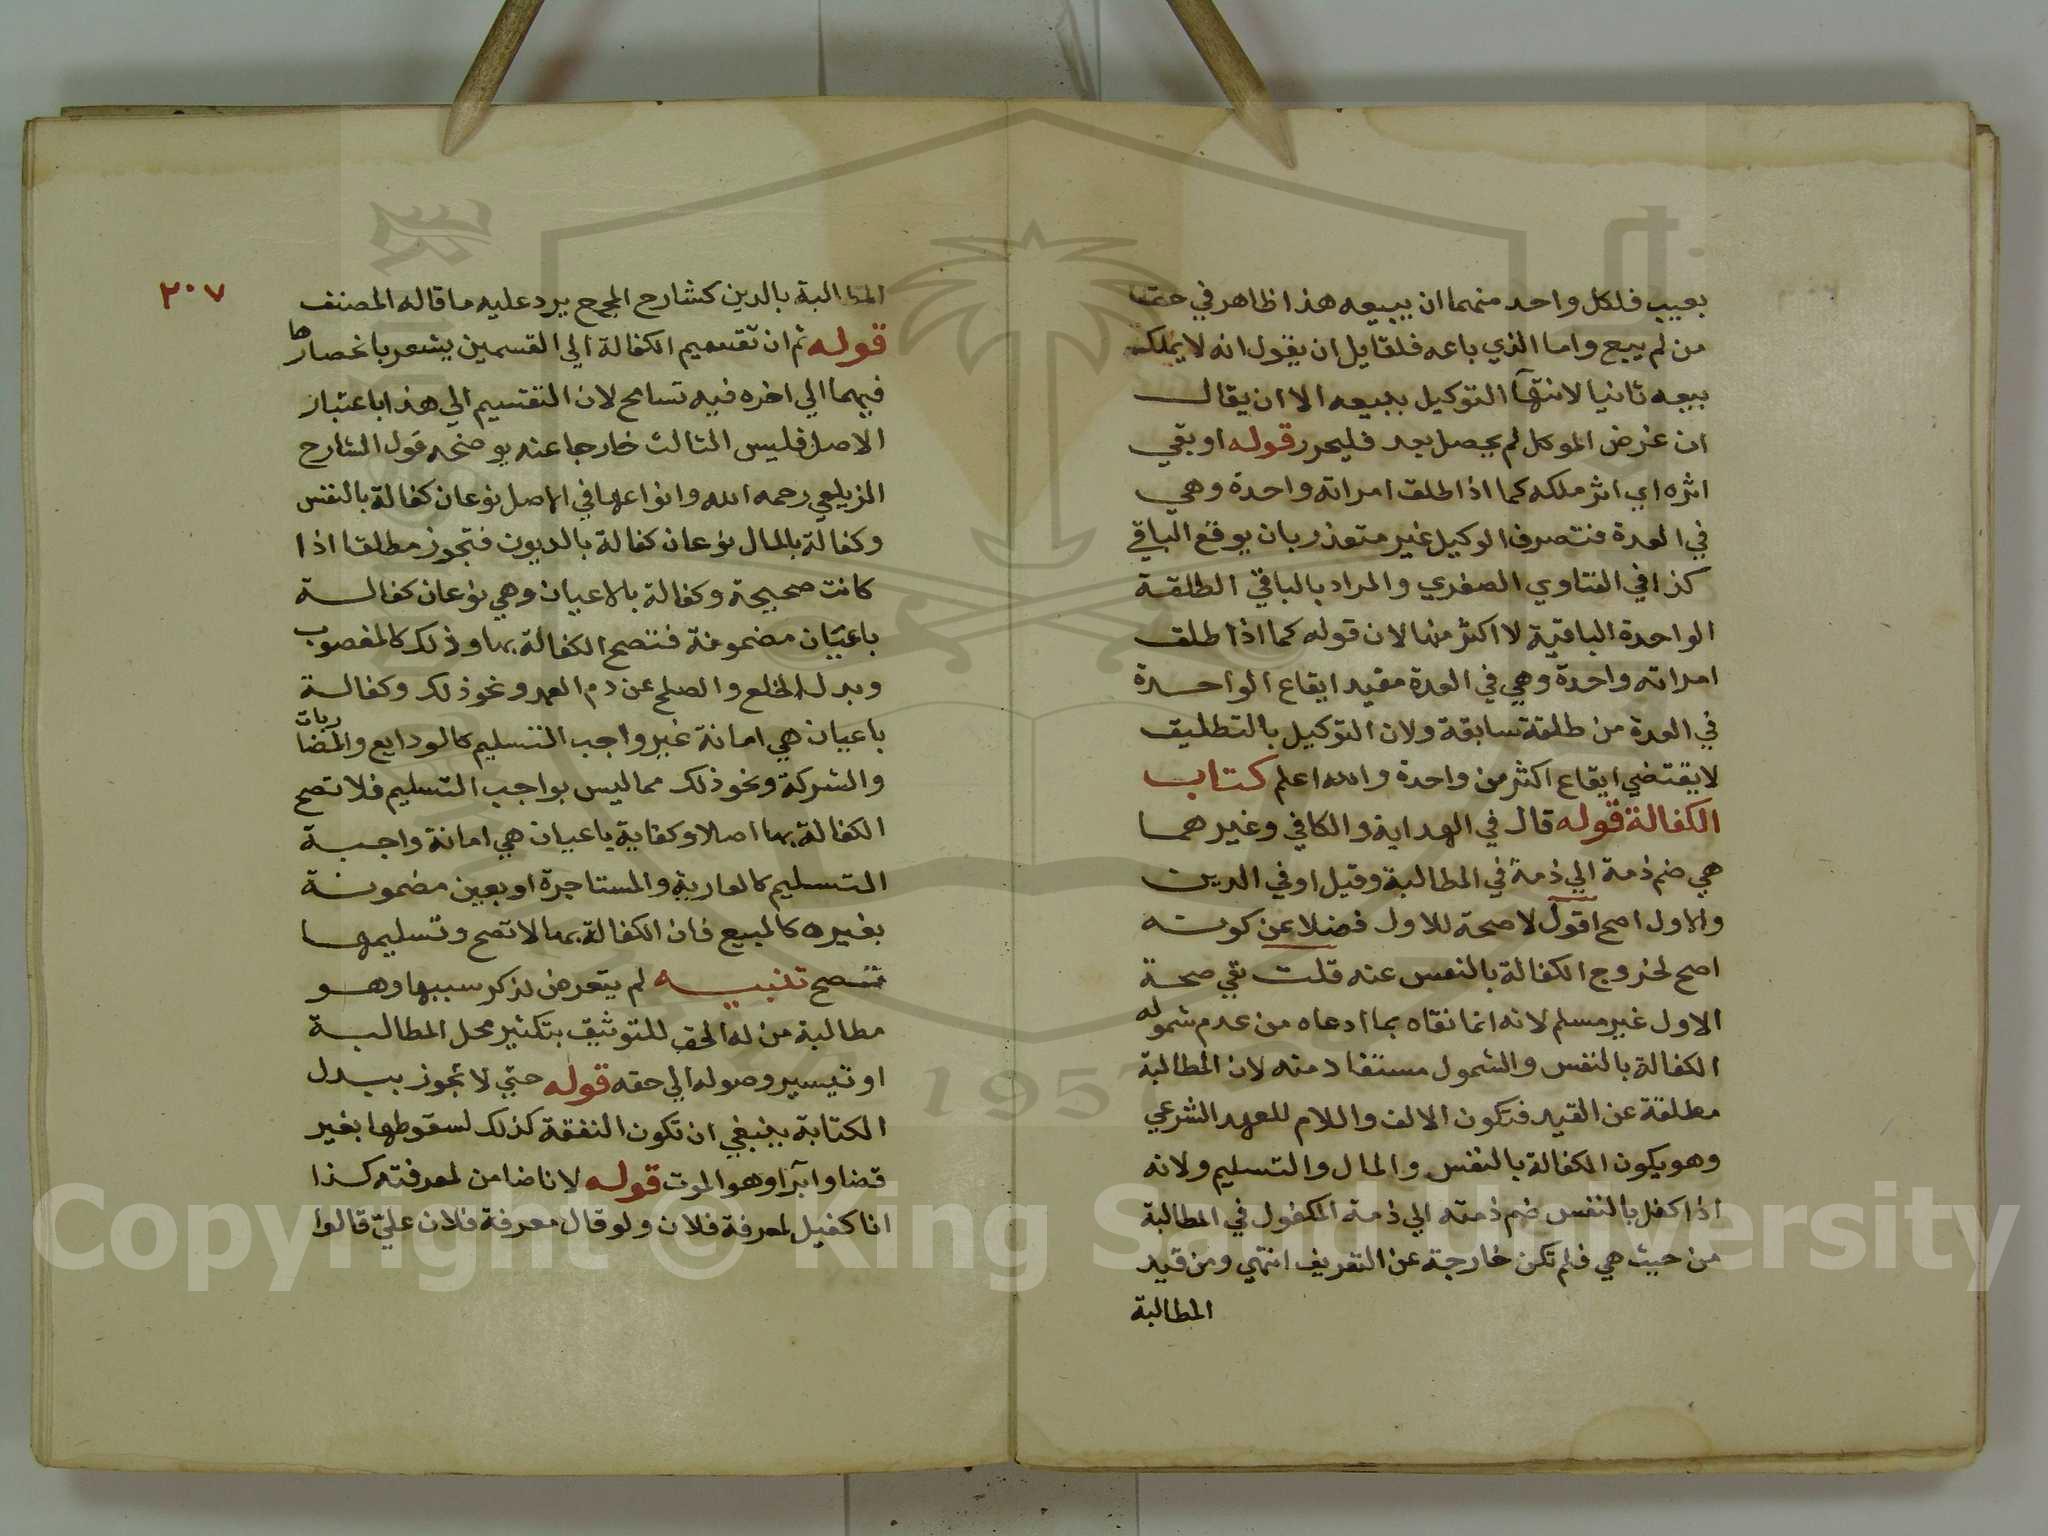 بعيب فلكل واحد منهما ان يبيعه هذا ظاهر في حق
من لم يبع واما الذي باعه فلقايل ان يقول انه لا يملك
بيعه ثانيا لانتهآ التوكيل ببيعه الا ان يقال
ان غرض الموكل لم يحصل بعد فليحرر قوله او بقي
اثره اي اثر ملكه كما اذا طلق امراته واحدة وهي
في العدة فتصرف الوكيل غير متعذر بان يوقع الباقي
كذا في الفتاوي الصغري والمراد بالباقي الطلقة
الواحدة الباقية لا اكثر منها لان قوله كما اذا طلق
امراته واحدة وهي في العدة مفيد ايقاع الواحدة
في العدة من طلقة سابقة ولان التوكيل بالتطليق
لا يقتضي ايقاع اكثر من واحدة والله اعلم كتاب
الكفالة قوله قال في الهداية والكافي وغيرهما
هي ضم ذمة الي ذمة في المطالبة وقيل او في الدين
والاول اصح اقول لا صحة للاول فضلا عن كونه
اصح لخروج الكفالة بالنفس عنه قلت نفي صحة
الاول غير مسلم لانه انما نفاه بما ادعاه من عدم شموله
الكفالة بالنفس والشمول مستفاد منه لان المطالبة
مطلقة عن القيد فتكون الالف واللام للعهد الشرعي
وهو يكون الكفالة بالنفس والمال والتسليم ولانه
اذا كفل بالنفس ضم ذمته الي ذمة المكفول في المطالبة
من حيث هي فلم تكن خارجة عن التعريف انتهي ومن قيد
المطالبة
٢٠٧
المطالبة بالدين كشارح المجمع يرد عليه ما قاله المصنف
قوله ثم ان تقسيم الكفالة الي القسمين يشعر بانحصارها
فيهما الي اخره فيه تسامح لان التقسيم الي هذا باعتبار
الاصل فليس الثالث خارجا عنه يوضحه قول الشارح
الزيلعي رحمه الله وانواعها في الاصل نوعان كفالة بالنفس
وكفالة بالمال نوعان كفالة بالديون فتجوز مطلقا اذا
كانت صحيحة وكفالة بالاعيان وهي نوعان كفالة
باعيان مضمونة فتصح الكفالة بها وذلك كالمغصوب
وبدل الخلع والصلح عن دم العمد ونحو ذلك وكفالة
باعيان هي امانة غير واجب التسليم كالودايع والمضاربات
والشركة ونحو ذلك مما ليس بواجب التسليم فلا تصح
الكفالة بها اصلا وكفاية باعيان هي امانة واجبة
التسليم كالعارية والمستاجرة او بعين مضمونة
بغيره كالمبيع فان الكفالة بها لا تصح وتسليمها
تصح تنبيه لم يتعرض لذكر سببها وهو
مطالبة من له الحق للتوثيق بتكثير محل المطالبة
او تيسير وصوله الي حقه قوله حتي لا تجوز ببدل
الكتابة ينبغي ان تكون النفقة كذلك لسقوطها بغير
قضا وابرآ وهو الموت قوله لانا ضامن لمعرفته كذا
انا كفيل لمعرفة فلان ولو قال معرفة فلان علي قالوا
Copyright © King Saud University
1957